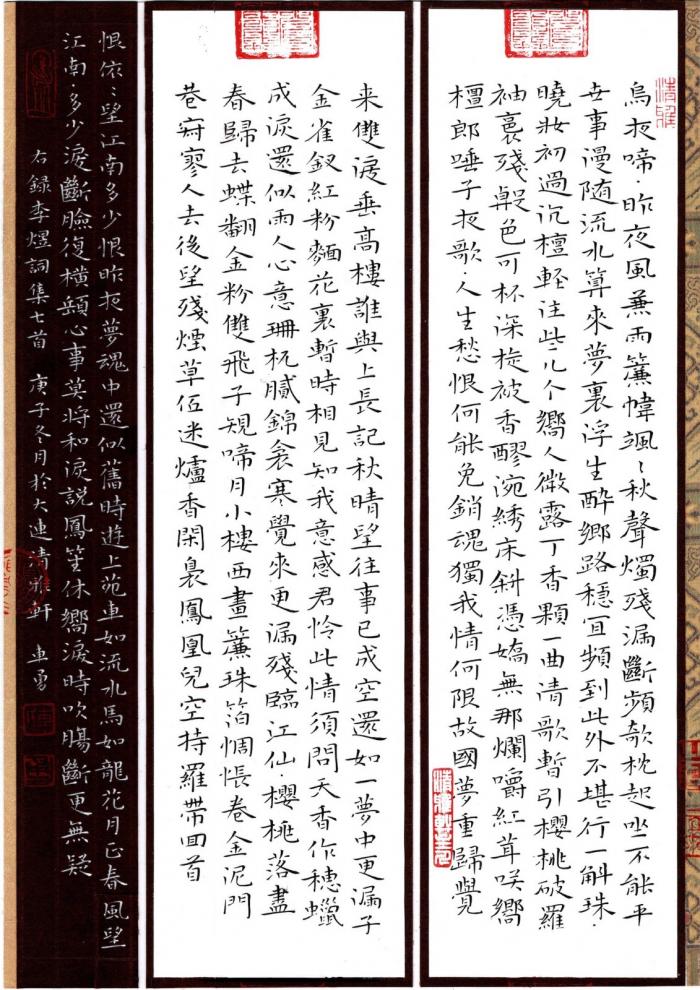 清雅
烏夜啼·昨夜風兼雨簾幃颯〻秋聲燭殘漏斷頻欹枕起坐不能平
世事漫随流水算來夢裏浮生醉鄉路穩宜頻到此外不堪行一斛珠·
曉妝初過沉檀輕注些儿个嚮人微露丁香顆一曲清歌暫引櫻桃破羅
袖裛殘殷色可杯深旋被香醪涴綉床斜憑嬌無那爛嚼紅茸笑嚮
檀郎唾子夜歌·人生愁恨何能免銷魂獨我情何限故國夢重歸覺
来雙淚垂高樓誰與上長記秋晴望往事已成空還如一夢中更漏子
金雀釵紅粉麵花裏暫時相見知我意感君怜此情須問天香作穗蠟
成淚還似兩人心意珊枕膩錦衾寒覺來更漏殘臨江仙·櫻桃落盡
春歸去蝶翻金粉雙飛子規啼月小樓西畫簾珠箔惆悵卷金泥門
巷寂寥人去後望殘煙草伍迷爐香閑裊鳳凰兒空持羅帶回首
恨依〻望江南多少恨昨夜夢魂中還似舊時遊上苑車如流水馬如龍花月正春風望
江南·多少淚斷臉復橫頤心事莫將和淚説鳳笙休嚮淚時吹腸斷更無疑
右録李煜詞集七首 庚子冬月於大連清雅軒 車勇